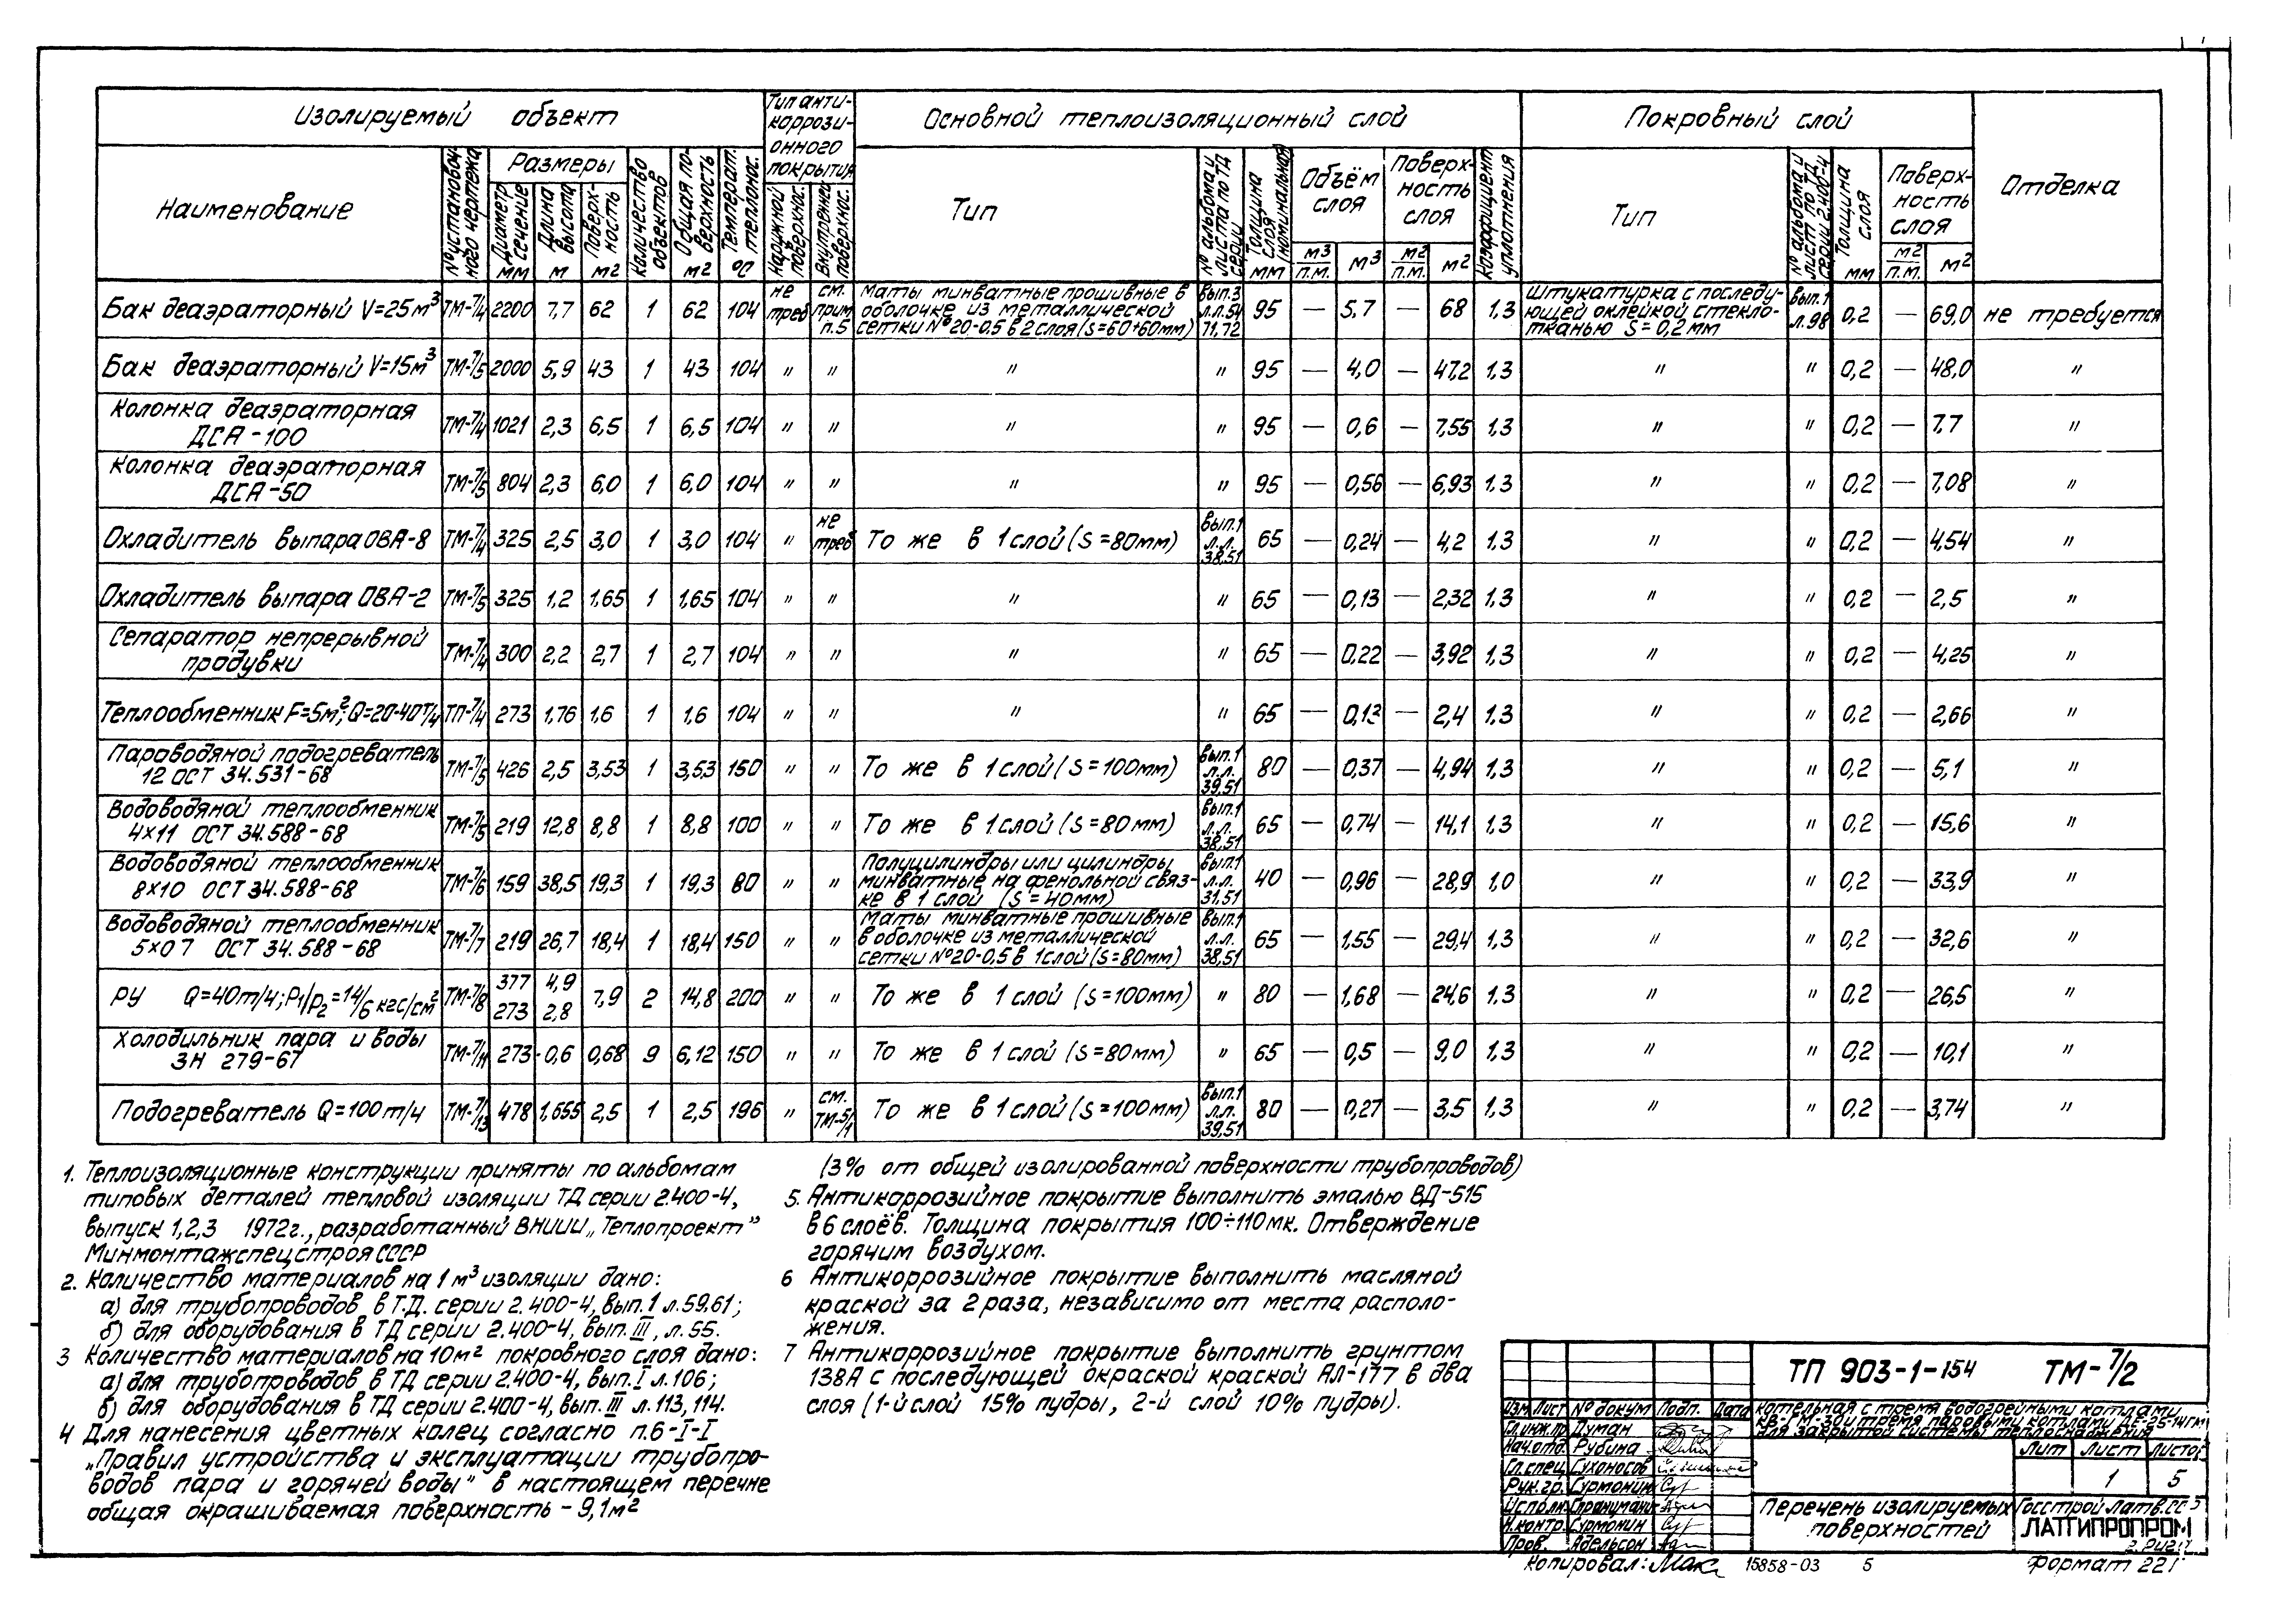 Изолируемый объект
Тип анти-
коррози-
онного
покрытия
Основной теплоизоляционный слой
Покровный слой
Отделка
Наименование
№ установоч-
ного чертежа
Размеры
Диаметр сечение мм
Длина высота м
Поверх-ность м2
Количество объектов
Общая по-верхность м2
Температ. теплонос. °С
Наружной поверхнос.
Внутренней поверхнос.
Тип
№ альбома и листа по ТД серии
Толщина слоя (номинальная) мм
Объём слоя
м3/п.м. м3
Поверх-ность слоя
м2/п.м. м2
Коэффициент уплотнения
Тип
№ альбома и лист по ТД серии 2.400-4
Толщина слоя мм
Поверх-ность слоя
м2/п.м. м2
Бак деаэраторный V=25м3 ТМ-7/4 2200 7,7 62 1 62 104 не треб см. прим п.5 Маты минватные прошивные в оболочке из металлической сетки №20-0.5 в 2 слоя (S=60+60мм) вып.3 л.л.54 71,72 95 — 5.7 — 68 1,3 Штукатурка с последу-ющей оклейкой стекло-тканью S=0,2мм вып.1 л.98 0,2 — 69,0 не требуется
Бак деаэраторный V=15м3 ТМ-7/5 2000 5,9 43 1 43 104 " " " " 95 — 4,0 — 47,2 1,3 " " 0,2 — 48,0 "
Колонка деаэраторная ДСА-100 ТМ-7/4 1021 2,3 6,5 1 6,5 104 " " " " 95 — 0,6 — 7,55 1,3 " " 0,2 — 7,7 "
Колонка деаэраторная ДСА-50 ТМ-7/5 804 2,3 6,0 1 6,0 104 " " " " 95 — 0,56 — 6,93 1,3 " " 0,2 — 7,08 "
Охладитель выпара ОВА-8 ТМ-7/4 325 2,5 3,0 1 3,0 104 " не треб То же в 1 слой (S=80мм) вып.1 л.л. 38,51 65 — 0,24 — 4,2 1,3 " " 0,2 — 4,54 "
Охладитель выпара ОВА-2 ТМ-7/5 325 1,2 1,65 1 1,65 104 " " " " 65 — 0,13 — 2,32 1,3 " " 0,2 — 2,5 "
Сепаратор непрерывной продувки ТМ-7/4 300 2,2 2,7 1 2,7 104 " " " " 65 — 0,22 — 3,92 1,3 " " 0,2 — 4,25 "
Теплообменник F=5м2; Q=20-40т/ч ТП-7/4 273 1,76 1,6 1 1,6 104 " " " " 65 — 0,13 — 2,4 1,3 " " 0,2 — 2,66 "
Пароводяной подогреватель 12 ОСТ 34.531-68 ТМ-7/5 426 2,5 3,53 1 3,53 150 " " То же в 1 слой (S=100мм) вып.1 л.л. 39,51 80 — 0,37 — 4,94 1,3 " " 0,2 — 5,1 "
Водоводяной теплообменник 4×11 ОСТ 34.588-68 ТМ-7/5 219 12,8 8,8 1 8,8 100 " " То же в 1 слой (S=80мм) вып.1 л.л. 38,51 65 — 0,74 — 14,1 1,3 " " 0,2 — 15,6 "
Водоводяной теплообменник 8×10 ОСТ 34.588-68 ТМ-7/6 159 38,5 19,3 1 19,3 80 " " Полуцилиндры или цилиндры минватные на фенольной связ-ке в 1 слой (S=40мм) вып.1 л.л. 31,51 40 — 0,96 — 28,9 1,0 " " 0,2 — 33,9 "
Водоводяной теплообменник 5×07 ОСТ 34.588-68 ТМ-7/7 219 26,7 18,4 1 18,4 150 " " Маты минватные прошивные в оболочке из металлической сетки №20-0,5 в 1слой (S=80мм) вып.1 л.л. 38,51 65 — 1,55 — 29,4 1,3 " " 0,2 — 32,6 "
РУ Q=40т/ч; Р1/Р2=14/6 кгс/см2 ТМ-7/8 377 273 4,9 2,8 7,9 2 14,8 200 " " То же в 1 слой (S=100мм) " 80 — 1,68 — 24,6 1,3 " " 0,2 — 26,5 "
Холодильник пара и воды ЗН 279-67 ТМ-7/11 273 0,6 0,68 9 6,12 150 " " То же в 1 слой (S=80мм) " 65 — 0,5 — 9,0 1,3 " " 0,2 — 10,1 "
Подогреватель Q=100т/ч ТМ-7/13 478 1,655 2,5 1 2,5 196 " см. ТМ-5/1 То же в 1 слой (S=100мм) вып.1 л.л. 39,51 80 — 0,27 — 3,5 1,3 " " 0,2 — 3,74 "
1. Теплоизоляционные конструкции приняты по альбомам
типовых деталей тепловой изоляции ТД серии 2.400-4,
выпуск 1,2,3 1972г., разработанный ВНИИИ „Теплопроект"
Минмонтажспецстроя СССР
2. Количество материалов на 1 м3 изоляции дано:
а) для трубопроводов в Т.Д. серии 2.400-4, вып.1 л.59,61;
б) для оборудования в ТД серии 2.400-4, вып. III, л.55.
3 Количество материалов на 10м2 покровного слоя дано:
а) для трубопроводов в ТД серии 2.400-4, вып. I л.106;
б) для оборудования в ТД серии 2.400-4, вып. III л.113, 114.
4 Для нанесения цветных колец согласно п.6-I-I
„Правил устройства и эксплуатации трубопро-
водов пара и горячей воды" в настоящем перечне
общая окрашиваемая поверхность - 9,1м2
(3% от общей изолированной поверхности трубопроводов)
5. Антикоррозийное покрытие выполнить эмалью ВД-515
в 6 слоёв. Толщина покрытия 100÷110мк. Отверждение
горячим воздухом.
6 Антикоррозийное покрытие выполнить масляной
краской за 2 раза, независимо от места располо-
жения.
7 Антикоррозийное покрытие выполнить грунтом
138А с последующей окраской краской АЛ-177 в два
слоя (1-й слой 15% пудры, 2-й слой 10% пудры).
ТП 903-1-154 ТМ-7/2
Изм Лист № докум Подп. Дата
котельная с тремя водогрейными котлами
КВ-ГМ-30 и тремя паровыми котлами ДЕ-25-14ГМ
для закрытой системы теплоснабжения
Гл.инж.пр Думан
Нач.отд. Рубина
Гл.спец Сухоносов
Рук.гр. Сурмонин
Исполн
Н.контр. Сурмонин
Пров. Адельсон
Лит Лист Листов
1 5
Перечень изолируемых
поверхностей
Госстрой Латв.ССР
ЛАТГИПРОПРОМ
г. Рига
Копировал: Мак 15858-03 5 Формат 22Г